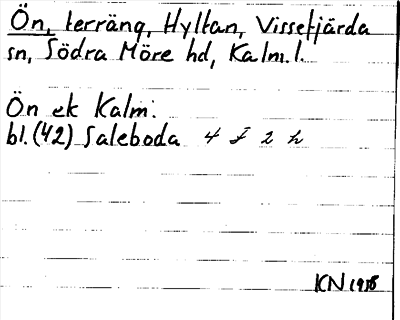 Ön, terräng, Hyltan, Vissefjärda
sn, Södra Möre hd, Kalm. l.
Ön ek Kalm.
bl. (42) Saleboda 4 f 2 h
KN 1958